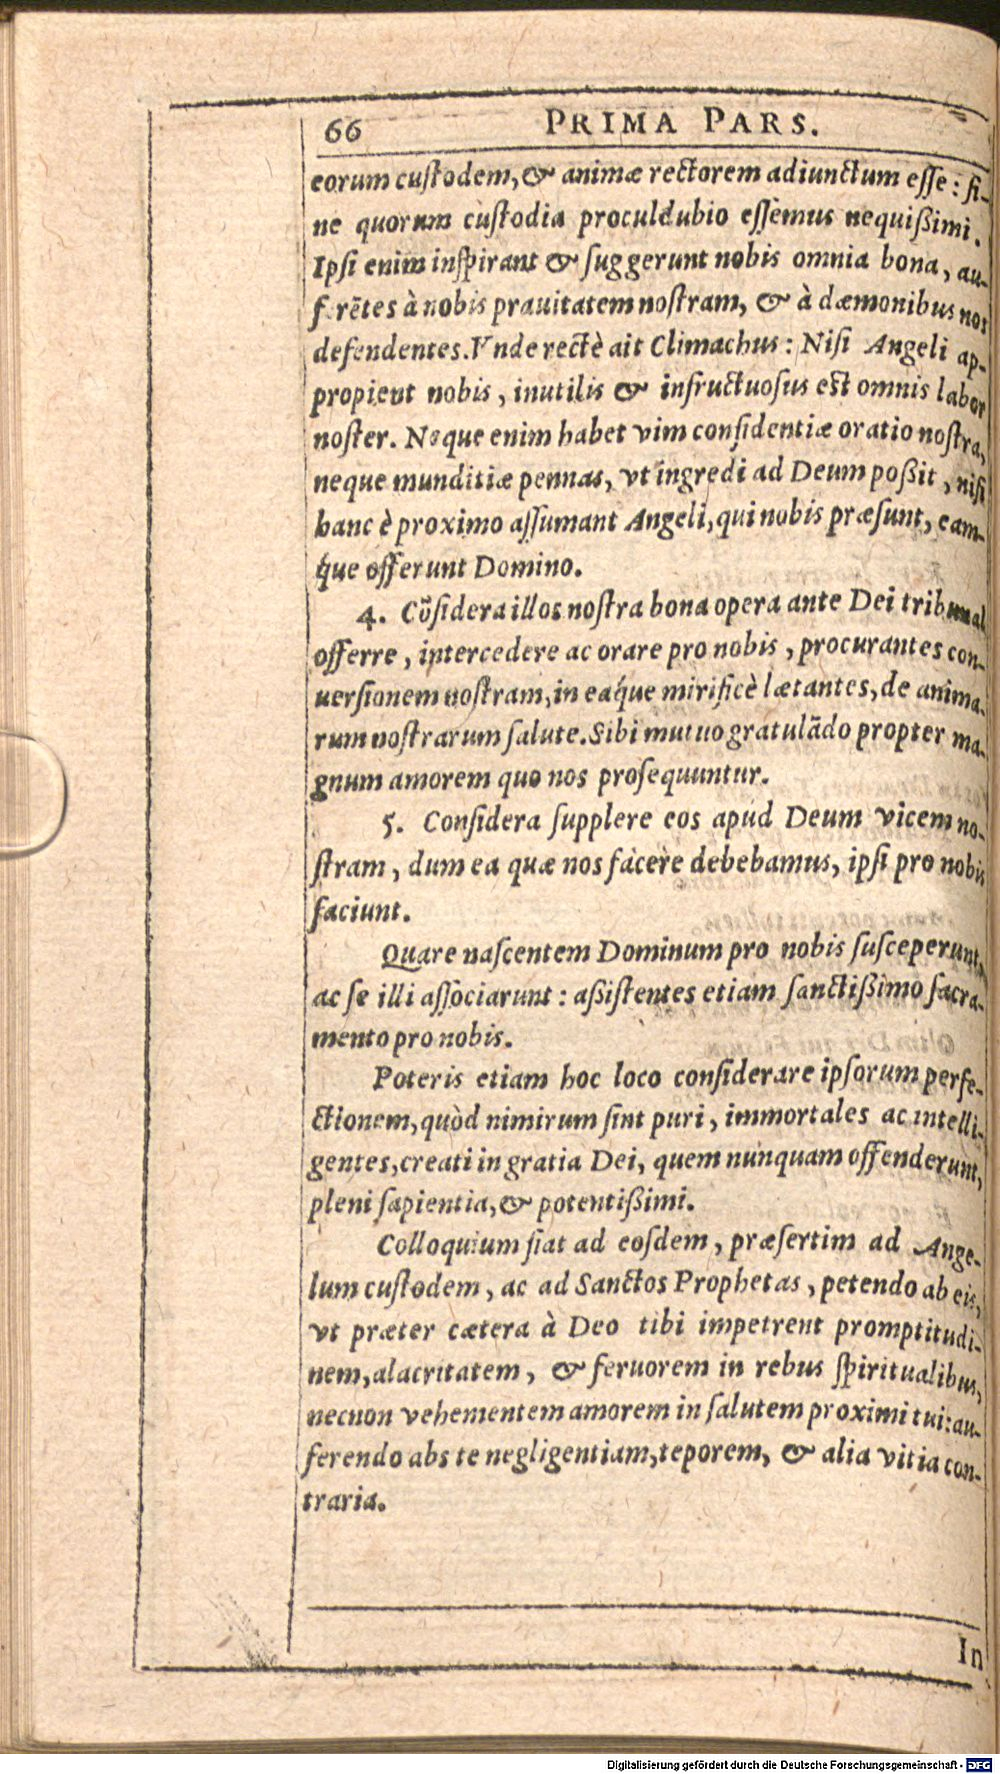 66 PRIMA PARS.
eorum cuſtodem, & animæ rectorem adiunctum eſſe: ſi-
ne quorum cuſtodia proculdubio eſſemus nequißimi.
Ipſi enim inſpirant & ſuggerunt nobis omnia bona, au-
ferẽtes à nobis prauitatem noſtram, & à dæmonibus nos
defendentes. Vnde rectè ait Climachus: Niſi Angeli ap-
propient nobis, inutilis & infructuoſus est omnis labor
noſter. Neque enim habet vim conſidentiæ oratio noſtra,
neque munditiæ pennas, vt ingredi ad Deum poßit, niſi
hanc è proximo aſſumant Angeli, qui nobis præſunt, eam-
q́ue offerunt Domino.
4. Cõſidera illos noſtra bona opera ante Dei tribunal
offerre, intercedere ac orare pro nobis, procurantes con-
uerſionem noſtram, in eaq́ue mirificè lætantes, de anima-
rum noſtrarum ſalute. Sibi mutuo gratulãdo propter ma-
gnum amorem quo nos proſequuntur.
5. Conſidera ſupplere eos apud Deum vicem no-
ſtram, dum ea quæ nos facere debebamus, ipſi pro nobis
faciunt.
Quare naſcentem Dominum pro nobis ſuſceperunt,
ac ſe illi aſſociarunt: aßiſtentes etiam ſanctißimo ſacra-
mento pro nobis.
Poteris etiam hoc loco conſiderare ipſorum perfe-
ctionem, quòd nimirum ſint puri, immortales ac intelli-
gentes, creati in gratia Dei, quem nunquam offenderunt,
pleni ſapientia, & potentißimi.
Colloquium fiat ad eoſdem, præſertim ad Ange-
lum cuſtodem, ac ad Sanctos Prophetas, petendo ab eis,
vt præter cætera à Deo tibi impetrent promptitudi-
nem, alacritatem, & feruorem in rebus ſpiritualibus,
necnon vehementem amorem in ſalutem proximi tui: au-
ferendo abs te negligentiam, teporem, & alia vitia con-
traria.
In
Digitalisierung gefördert durch die Deutsche Forschungsgemeinschaft - DFG